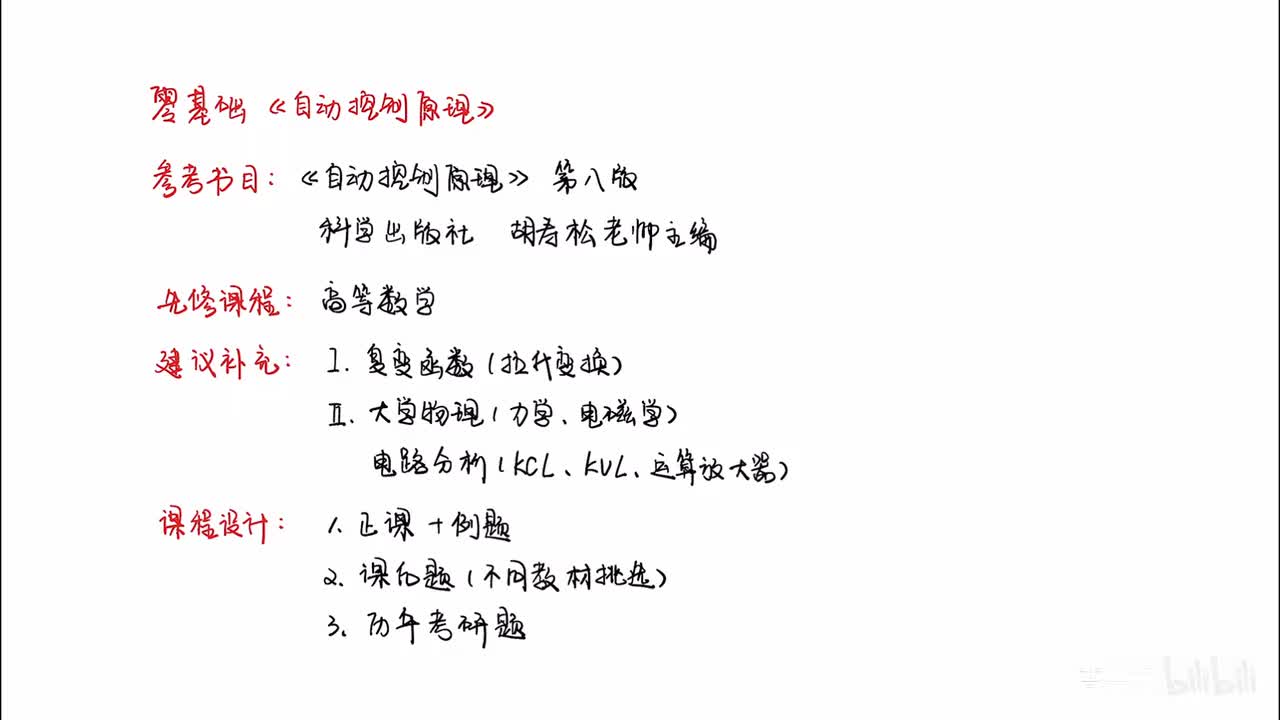 零基础《自动控制原理》
参考书目：《自动控制原理》 第八版
科学出版社 胡寿松老师主编
先修课程： 高等数学
建议补充： I. 复变函数（拉氏变换）
II. 大学物理（力学、电磁学）
电路分析（KCL、KVL、运算放大器）
课程设计： 1. 正课 + 例题
2. 课后题（不同教材挑选）
3. 历年考研题
bilibili